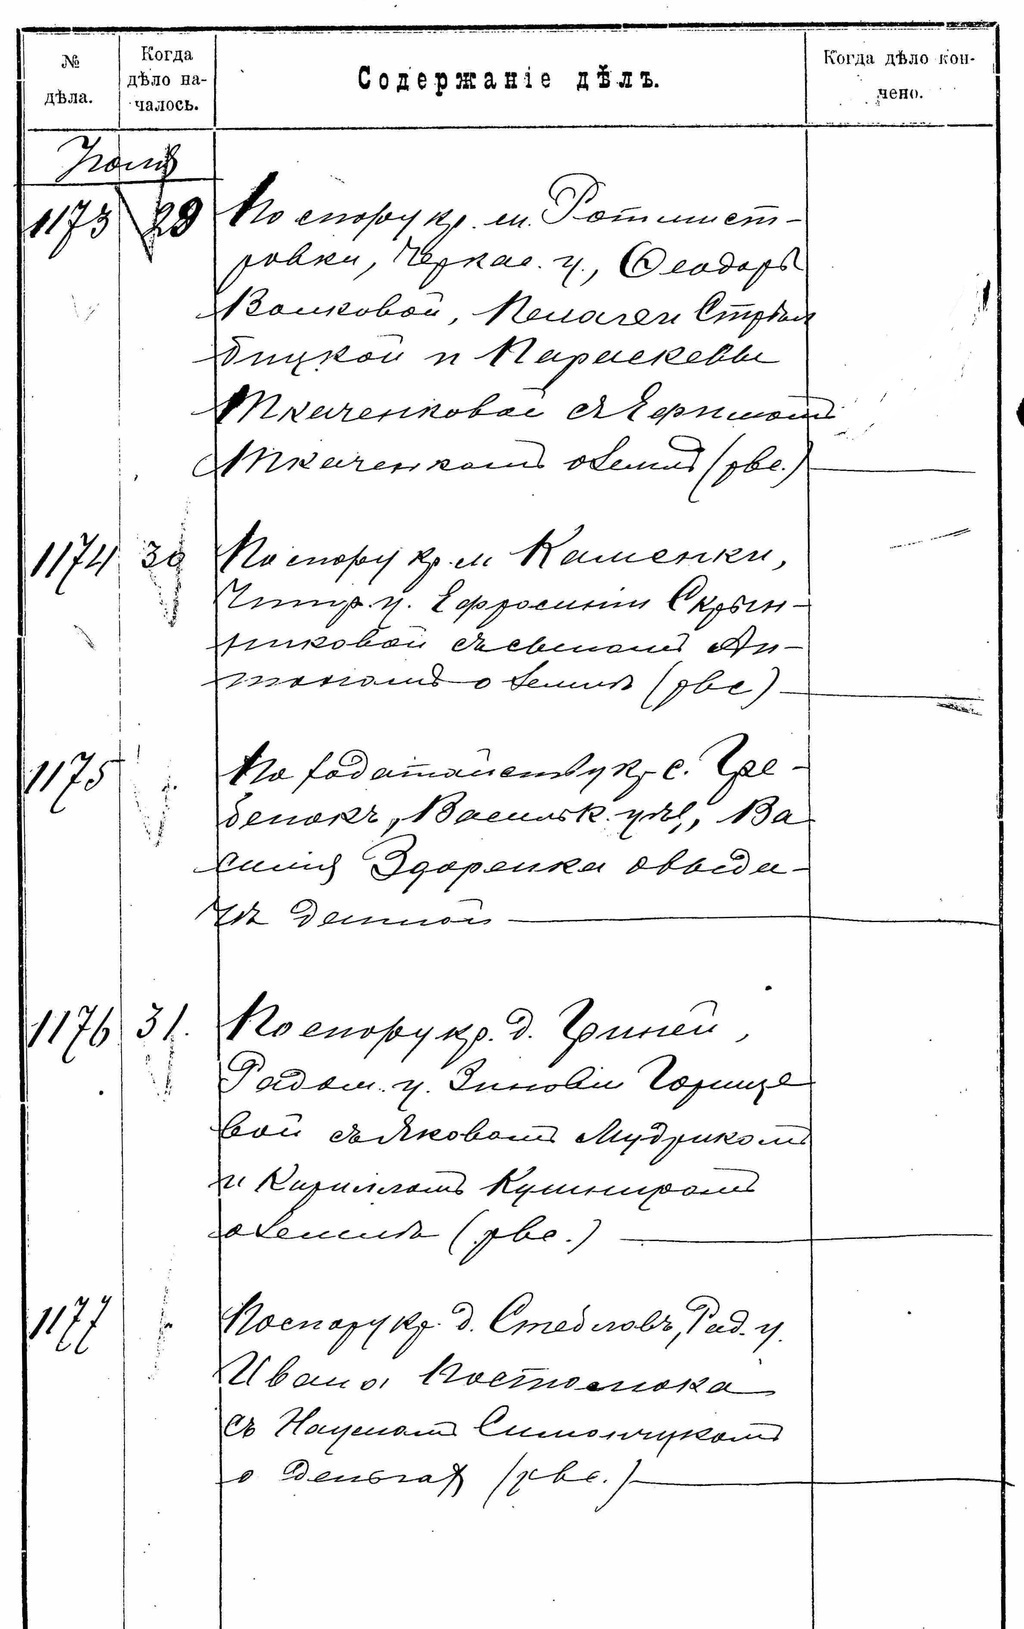 № дѣла. Когда дѣло началось. Содержаніе дѣлъ. Когда дѣло кончено.
Іюля
1173 29 По спору кр. м. Ротмист-
ровки, Черкас. у., Ѳеодоры
Волковой, Пелагеи Стрѣль
бицкой и Параскевы
Ткаченковой съ Ефимомъ
Ткаченкомъ о землѣ (рвс.)
1174 30 По спору кр. м. Каменки,
Чигир. у. Ефросиніи Скрын-
никовой съ сыномъ Ан-
тономъ о землѣ (рвс)
1175 По ходатайству кр. с. Гре-
бенокъ, Васильк. уѣ., Ва
силія Здоренка о выда-
чѣ данной
1176 31. По спору кр. д. Гриней,
Радом. у. Зиновіи Горище
вой съ Яковомъ Мудрикомъ
и Кирилломъ Кушниромъ
о землѣ (рвс.)
1177 По спору кр. д. Стебловъ, Рад. у.
Ивана Костюка
съ Наумомъ Симончукомъ
о деньгахъ (рвс.)